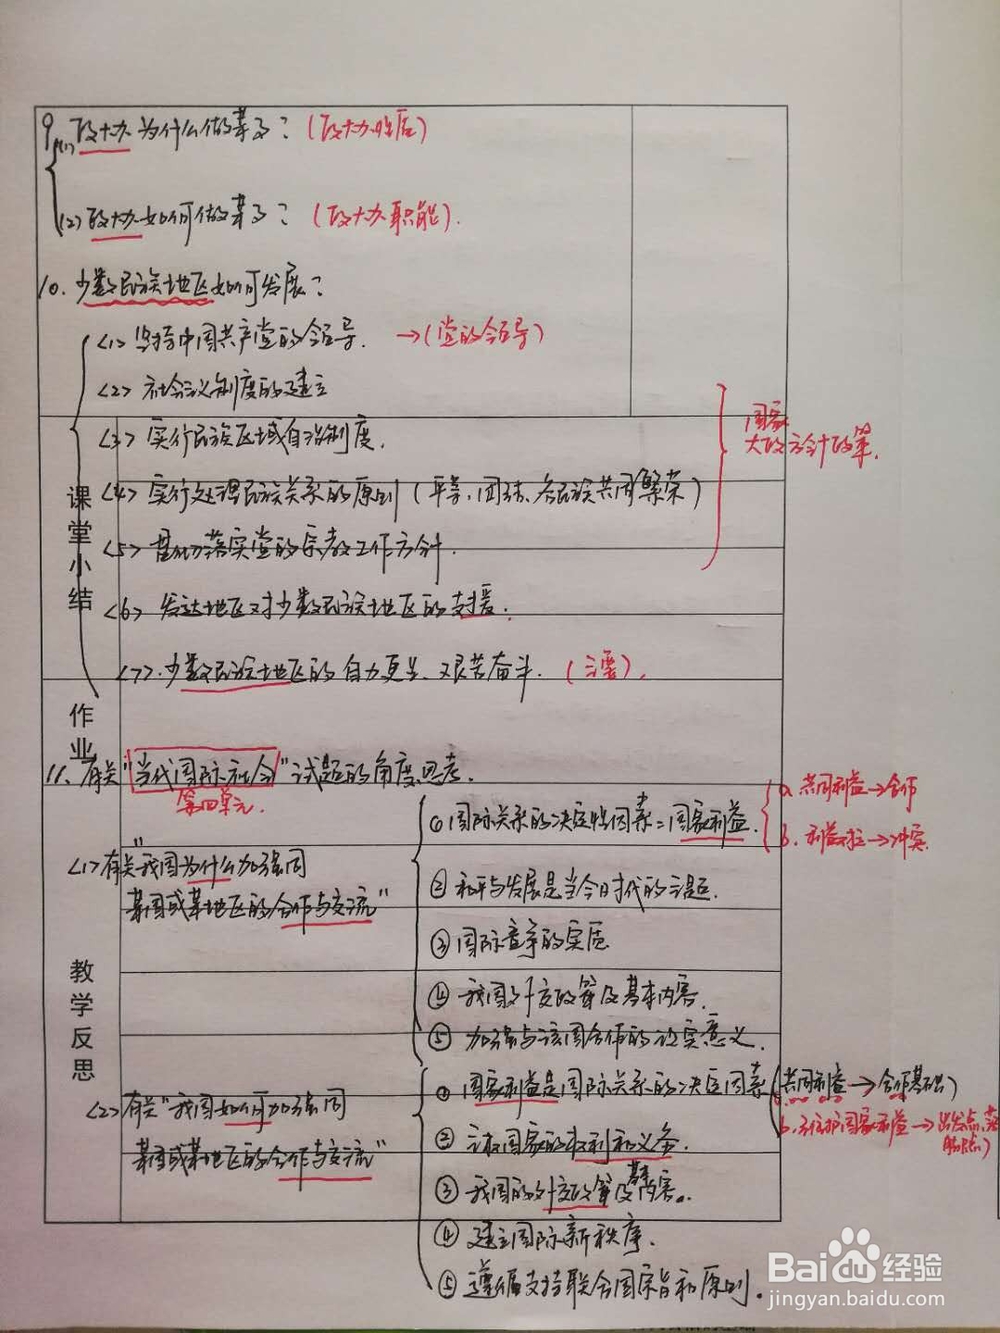 9.(1)政协为什么做某事？（政协性质）
(2)政协如何做某事？（政协职能）.
10.少数民族地区如何发展？
<1>坚持中国共产党的领导. →（党的领导）
<2>社会主义制度的建立
<3>实行民族区域自治制度.
国家大政方针政策.
<4>实行处理民族关系的原则（平等、团结、各民族共同繁荣）
<5>落实党的宗教工作方针.
<6>发达地区对少数民族地区的支援.
<7>.少数民族地区的自力更生、艰苦奋斗.（主要）.
课堂小结
作业
11.有关"当代国际社会"试题的角度思考.
第四单元.
<1>有关"我国为什么加强同
某国或某地区的合作与交流"
①国际关系的决定性因素：国家利益.
a.共同利益→合作
b.利益对立→冲突.
②和平与发展是当今时代的主题.
③国际竞争的实质
④我国外交政策及基本内容.
⑤加强与该国合作的现实意义.
教学反思
<2>有关"我国如何加强同
某国或某地区的合作与交流"
①国家利益是国际关系的决定因素
共同利益→合作基础）
b.维护国家利益→出发点、落脚点）
②主权国家的权利和义务.
③我国的外交政策及基本内容.
④建立国际新秩序.
⑤遵循支持联合国宗旨和原则.
Baidu经验
jingyan.baidu.com